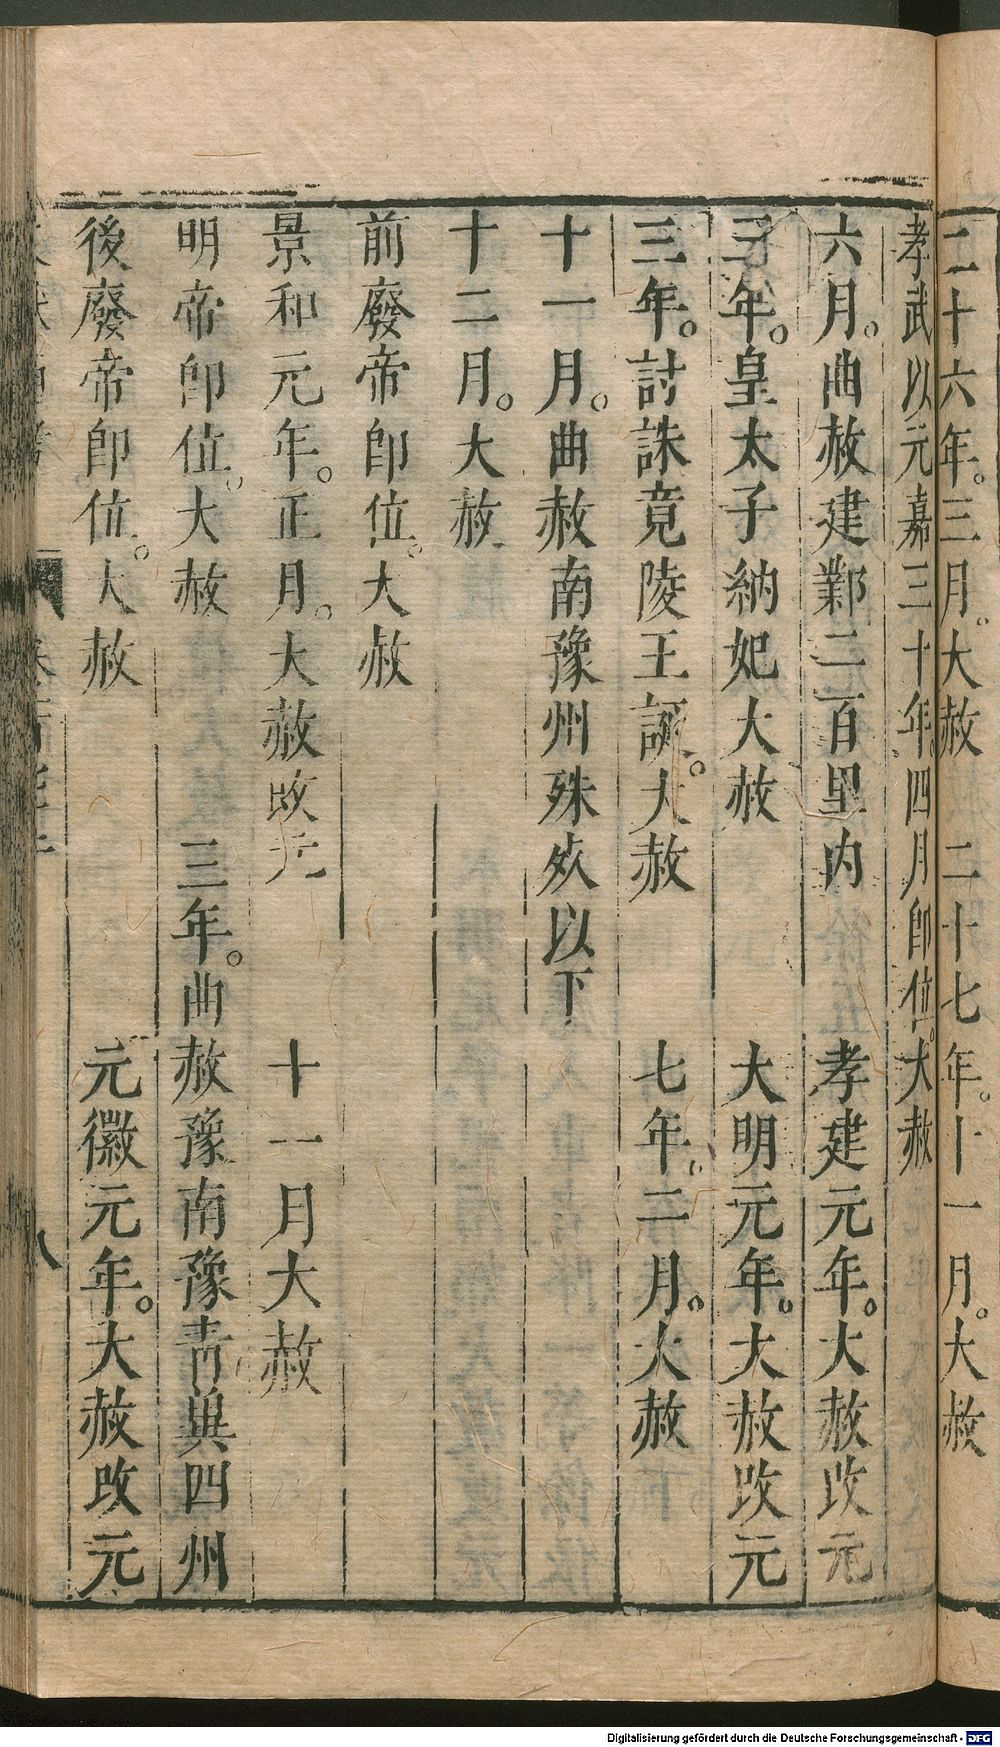 二十六年。三月。大赦　二十七年。十一月。大赦
孝武以元嘉三十年四月卽位。大赦
六月。曲赦建鄴二百里內　孝建元年。大赦改元
三年。皇太子納妃大赦　大明元年。大赦改元
三年。討誅竟陵王誕。大赦　七年。二月。大赦
十一月。曲赦南豫州殊死以下
十二月。大赦
前廢帝卽位。大赦
景和元年。正月。大赦改元　十一月大赦
明帝卽位。大赦　三年。曲赦豫南豫靑兾四州
後廢帝卽位。大赦　元徽元年。大赦改元
八
Digitalisierung gefördert durch die Deutsche Forschungsgemeinschaft - DFG